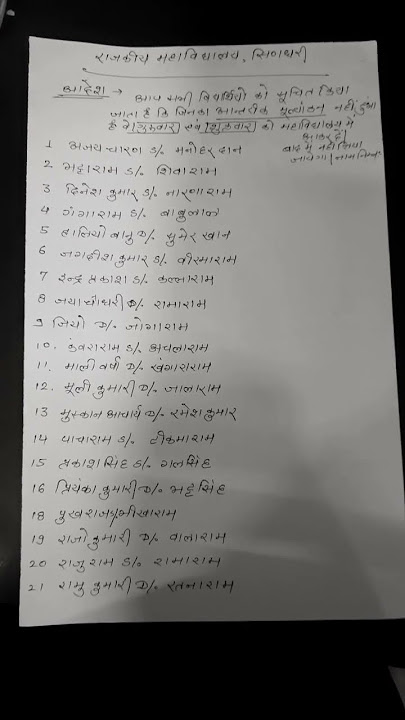 राजकीय महाविद्यालय, सिणधरी
आदेश → आप सभी विद्यार्थियों को सूचित किया
जाता है कि जिनका आन्तरीक मूल्यांकन नहीं हुआ
है वे गुरुवार एवं शुक्रवार को महाविद्यालय में
आकर दें।
बाद में नहीं लिया
जायेगा। नाम निम्न
1 अजयचारण S/o मनोहर दान
2 भट्टाराम S/o शिवाराम
3 दिनेश कुमार S/o नारणाराम
4 गंगाराम S/o बाबुलाल
5 हालियो बानु D/o सुमेर खान
6 जगदीश कुमार S/o वीरमाराम
7 इन्द्र प्रकाश S/o कल्लाराम
8 जया चौधरी D/o रामाराम
9 जियो D/o जोगाराम
10. कंवराराम S/o अचलाराम
11. माली वर्षा D/o खंगाराराम
12. मूली कुमारी D/o जालाराम
13 मुस्कान आचार्य D/o रमेश कुमार
14 पाचाराम S/o टीकमाराम
15 प्रकाश सिंह S/o गलसिंह
16 प्रियंका कुमारी D/o भट्टसिंह
18 पुखराज S/o भीखाराम
19 राजो कुमारी D/o वालाराम
20 राजुराम S/o रामाराम
21 रामु कुमारी D/o रतनाराम